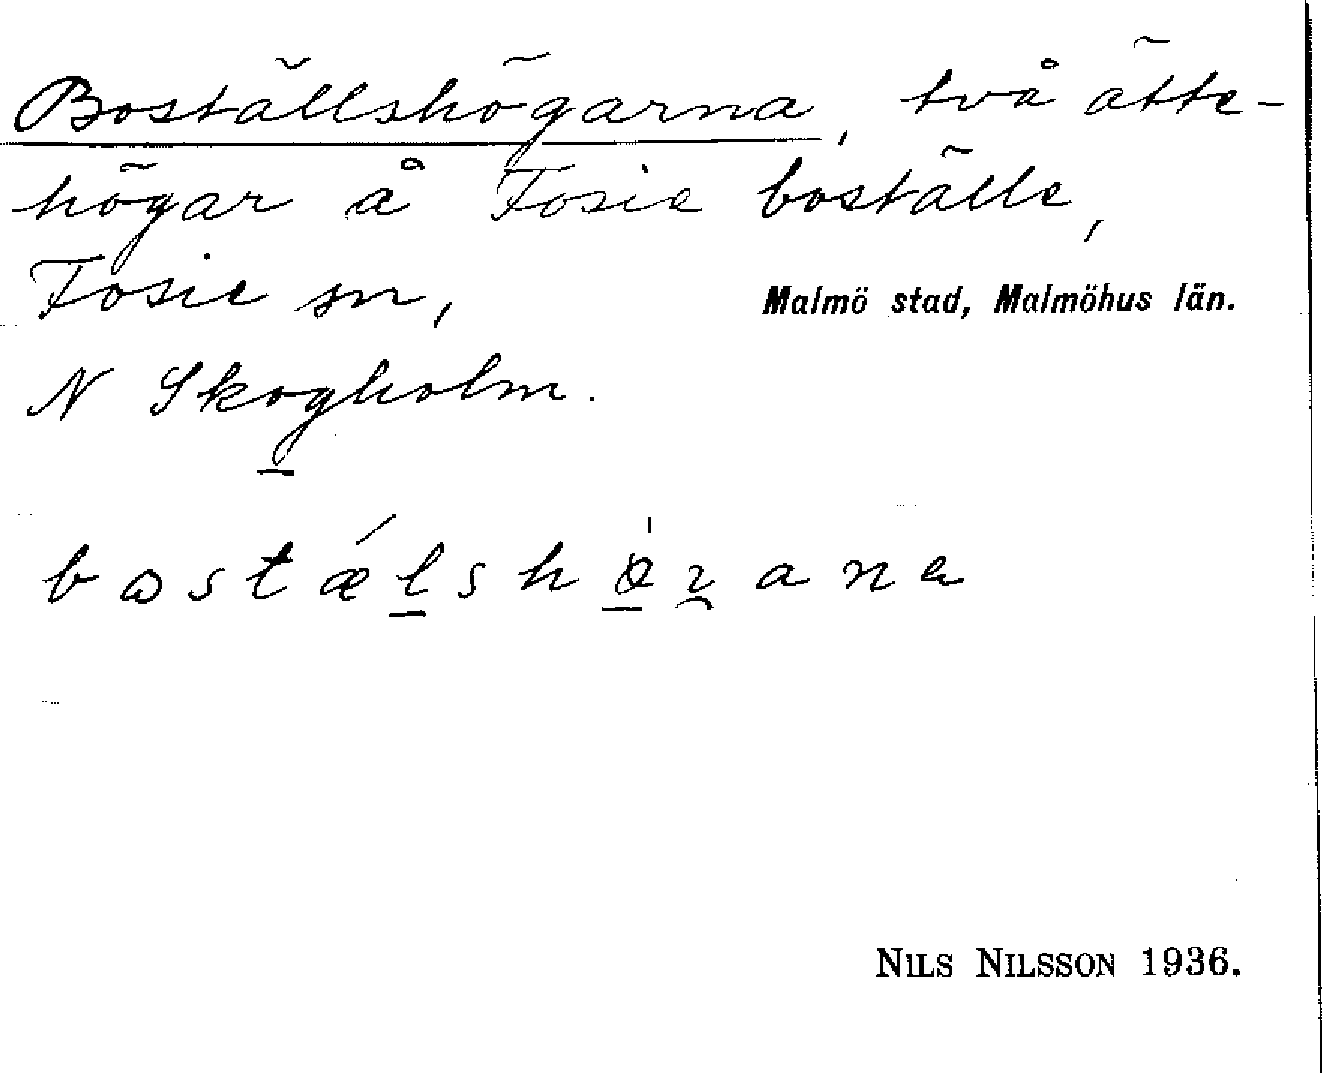 Boställshögarna, två ätte-
högar å Fosie boställe,
Fosie sn,
Malmö stad, Malmöhus län.
N Skogholm.
NILS NILSSON 1936.